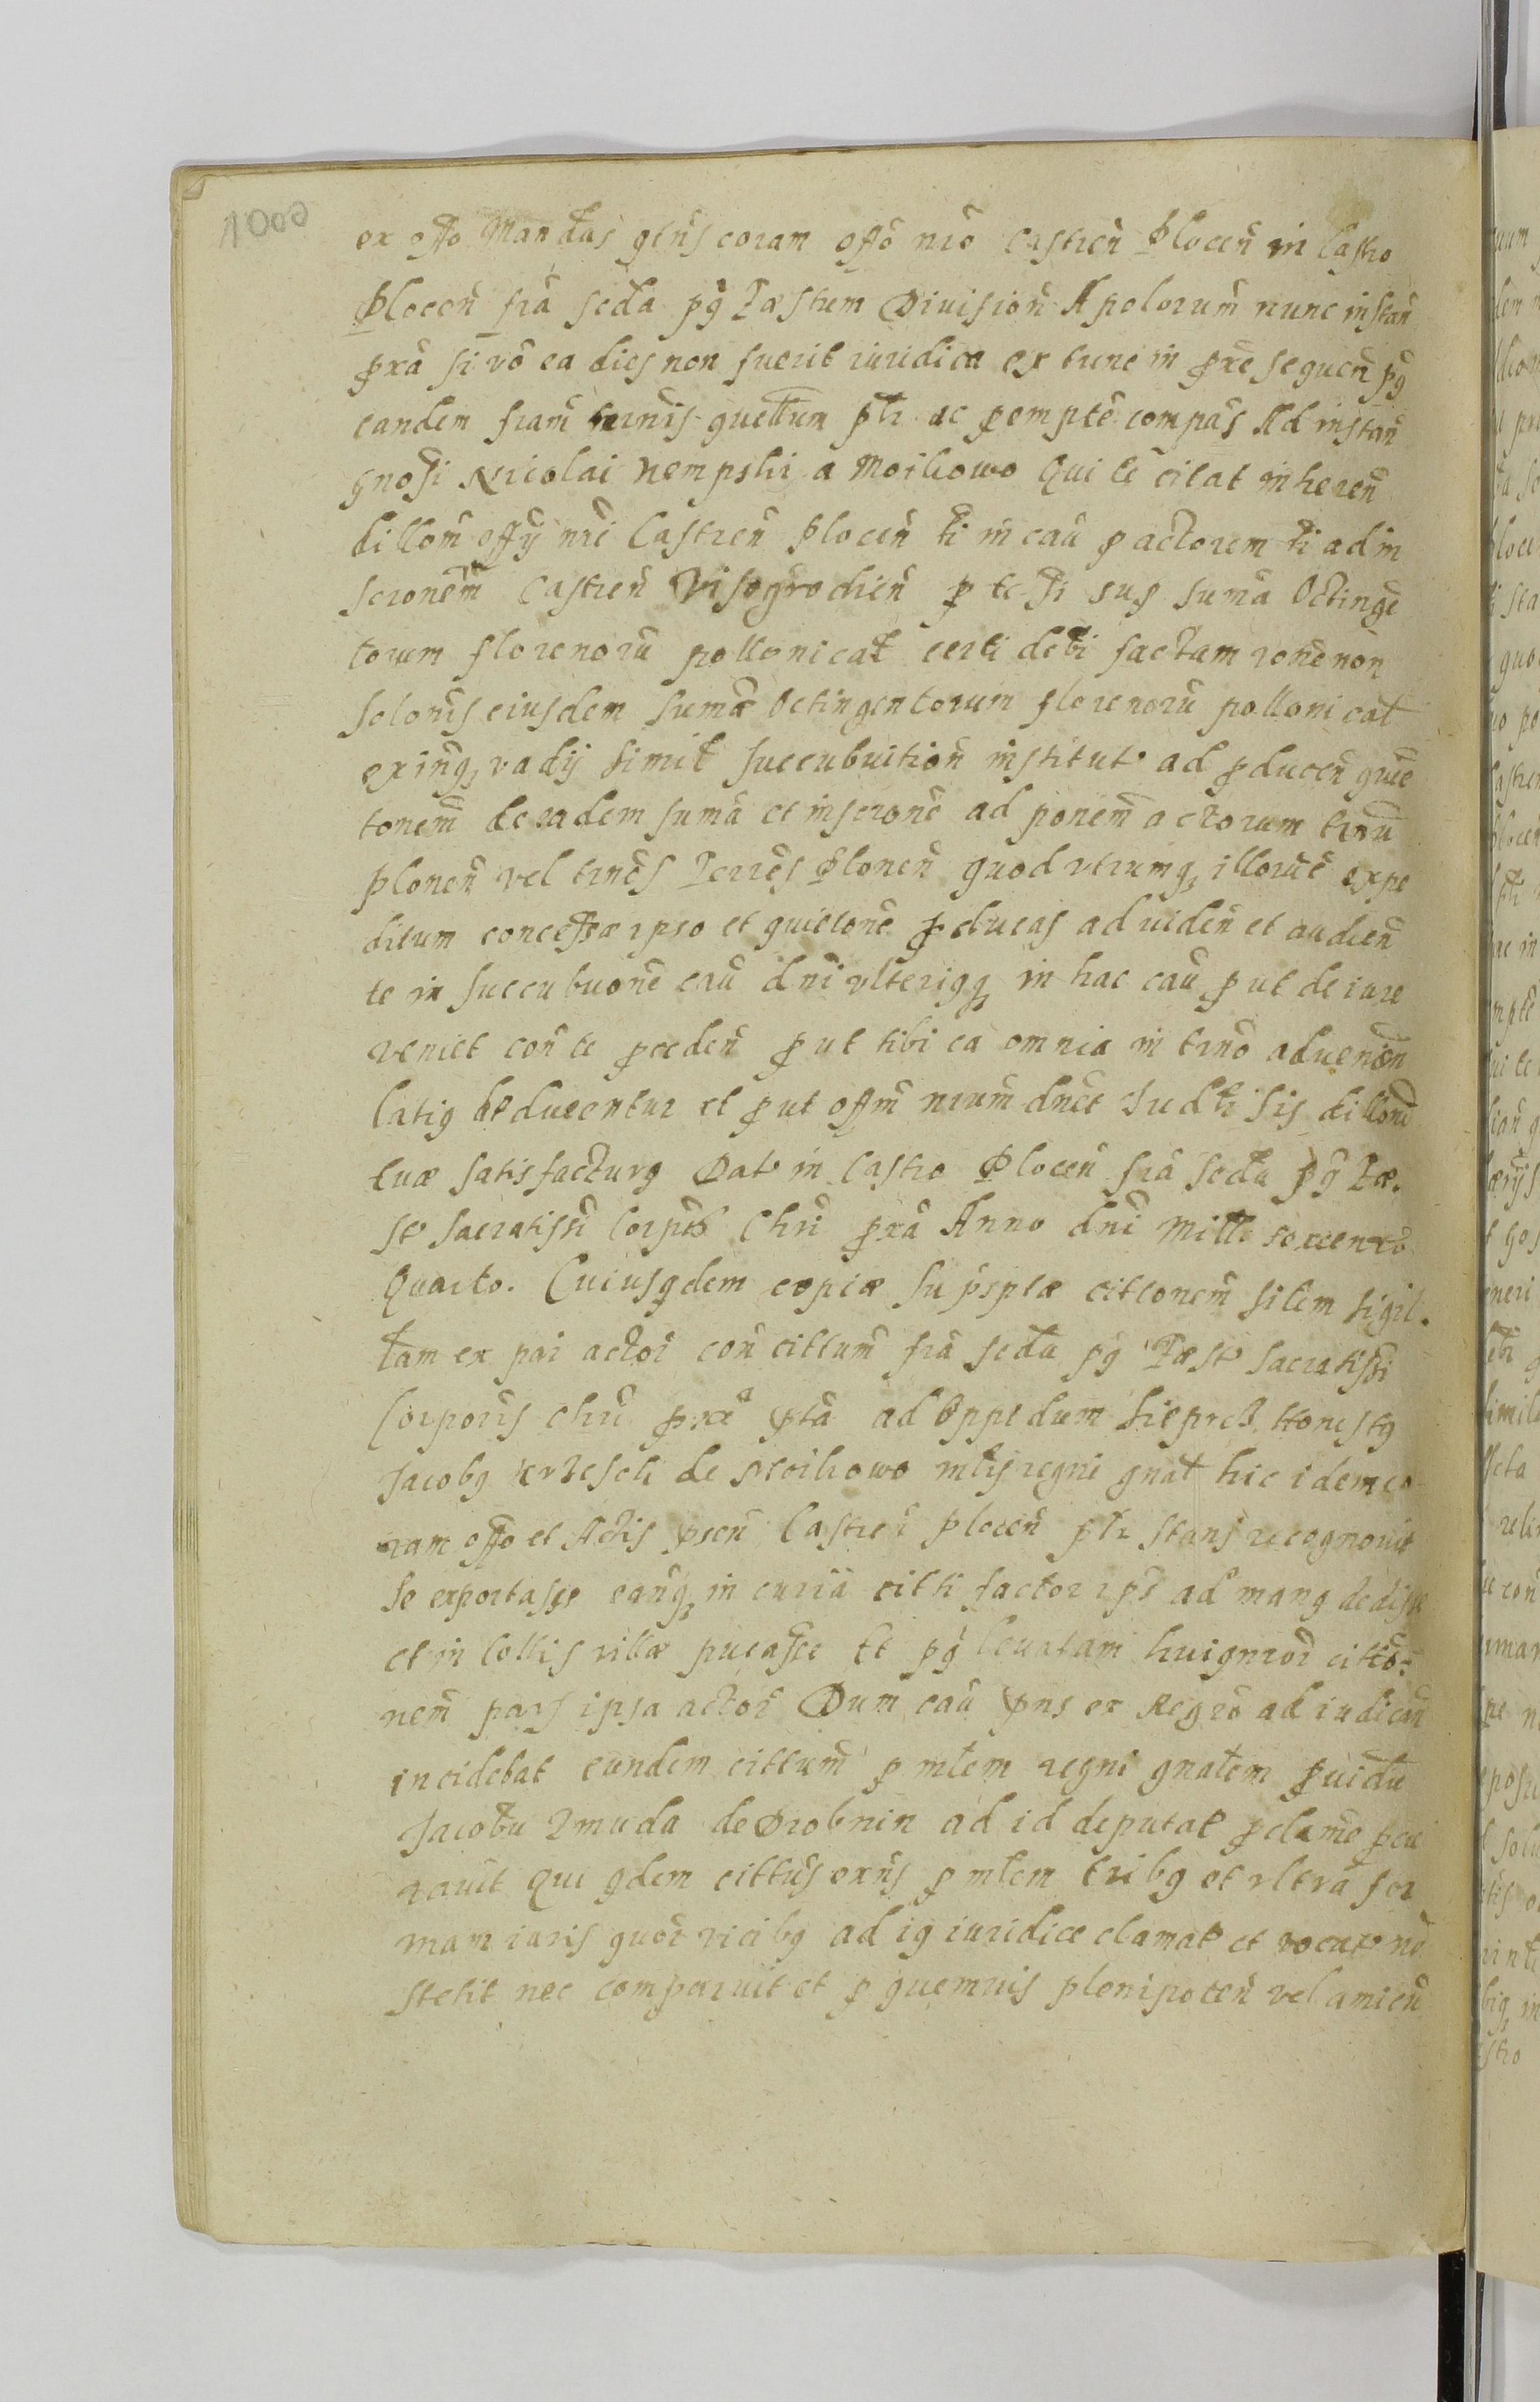 1000
ex offo Mandas gtñs coram offō nrō Castreñ Ploceñ in Castro
Ploceñ frã scda pq̃ Fæstum Divisioñ Apolorum nunc instañ
pxã si vō ea dies non fuerit iuridica ex tunc in pxẽ sequeñ pq̃
eandem fram termis quettum ptr ac pempte compas Ad instañ
gnosi Nicolai Nempski a Moikowo Qui te citat inhereñ
dillom offÿ nrẽ Castreñ Ploceñ ti in cau p actorem ti ad in
scronem Castreñ Visogrodieñ p te ti sup sumã Octinge
torum florenorũ pollonicat certi debi factam rone non
solonis eiusdem sumæ Octingentorum florenorũ pollonicat
exinq, vadij simit succubuitioñ institut ad pduceñ quie
tonem de eadem sumã et inscronẽ ad ponem actorum trnũ
ploneñ vel trnẽs Terrẽs Ploneñ quod utrumq, illorũ expe
ditum concessæ ipso et quietonẽ pducas ad videñ et audieñ
te in succubuone cau dñi ulteriqq, in hac cau put de iure
veniet coñ te pcedeñ put tibi ea omnia in trnō adveneñ
latiq deducentur et put offm nrum dnct Judti sis dillom
tuæ satisfacturq Dat in Castro Ploceñ frã scda pq̃ Fæ.
st Sacratissi Corpis Chri pxã Anno dñi Mille sexcento
Quarto. Cuiusqdem copiæ supsptæ cittonem silem sigil.
tam ex par actor coñ cittum frã scda pq̃ Fæst Sacratissi
Corporis Chri pxã pta ad Oppidum Sieprcz Honestq
Jacobq Krzesch de Moikowo mtis regni gnat hic idem co
ram offo et Actis pseñ Castreñ Ploceñ ptr stans recognovit
se exportasse eanq, in curiã citti factor ips ad manq dedisse
et in Collis villæ pucasse Et pq̃ levatam huiqmoi citto-
nem pars ipsa actor Dum cau pns ex Regrō ad iudicañ
incidebat eundem cittum p mtem regni gnatem pvidu
Jacobu Zmuda de Drobnin ad id deputat pclame pcu
ravit Qui qdem cittus exns p mtem tribq et ultrã for
mam iuris quor vicibq ad iq iuridice clamat et vocat nō
stetit nec comparuit et p quemvis plenipoteñ vel amicũ